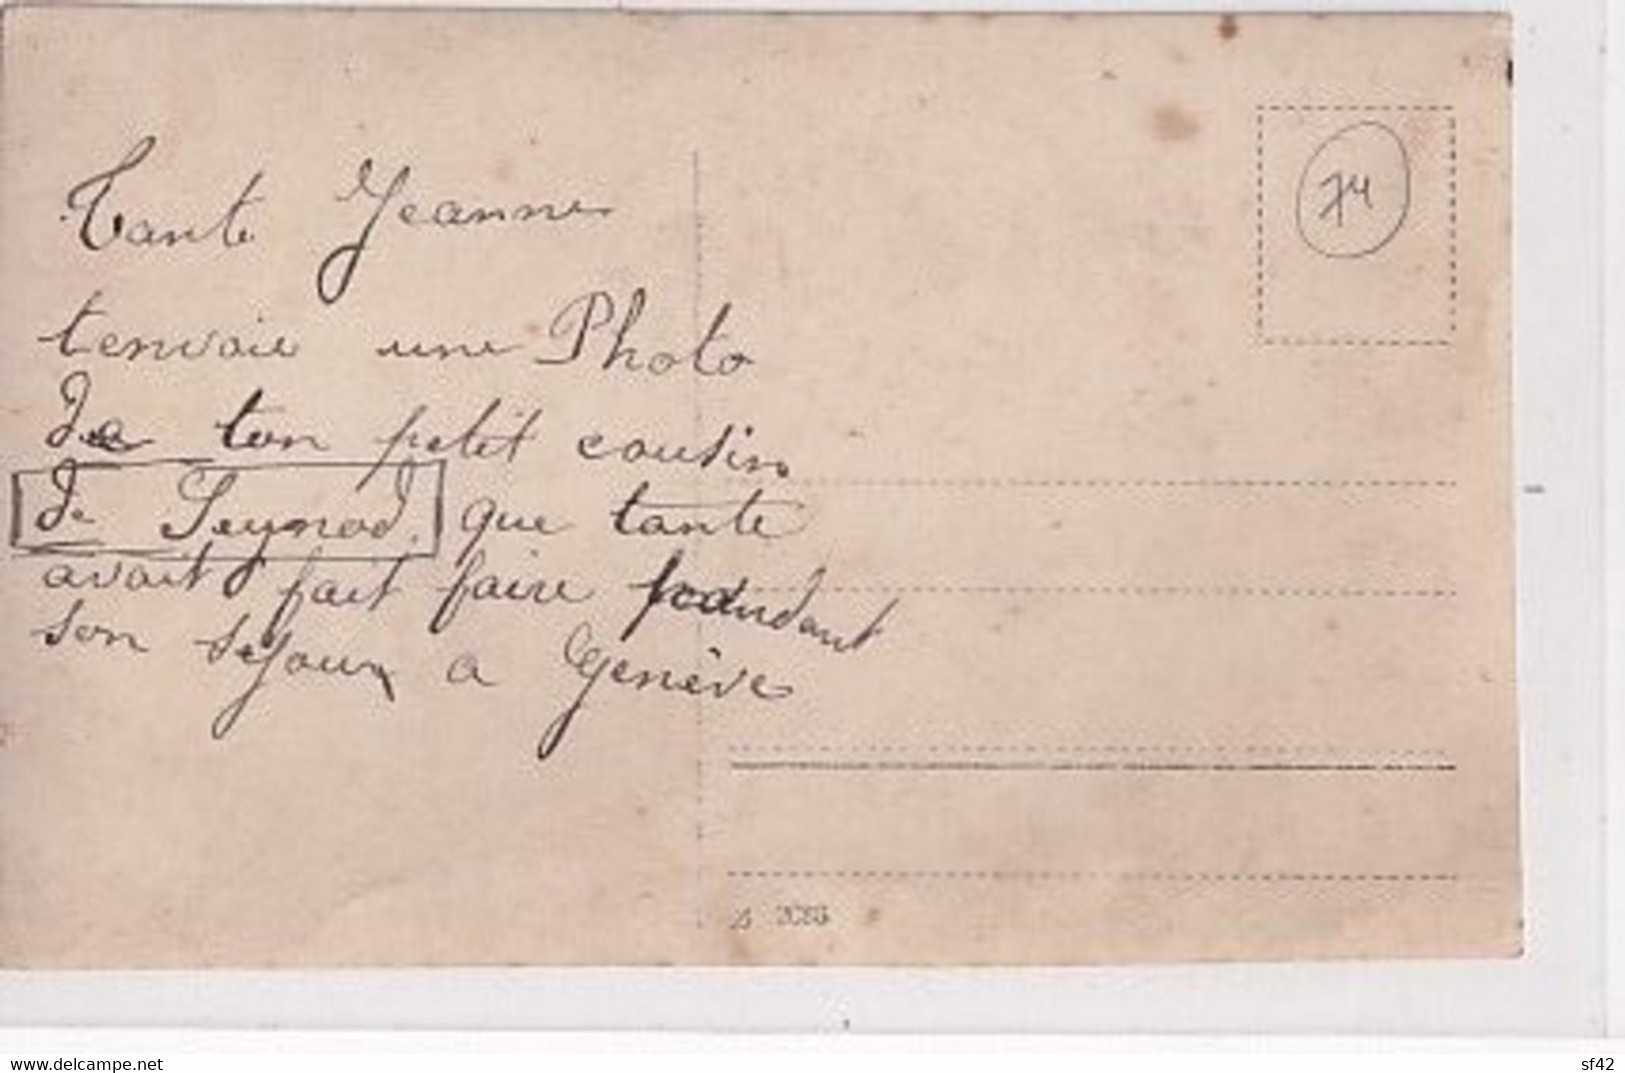 Tante Jeanne
74
tenvoie une Photo
De ton petit cousin
De Seynod. que tante
avait fait faire pandant
son sejour a Genève
2086
delcampe.net
sf42